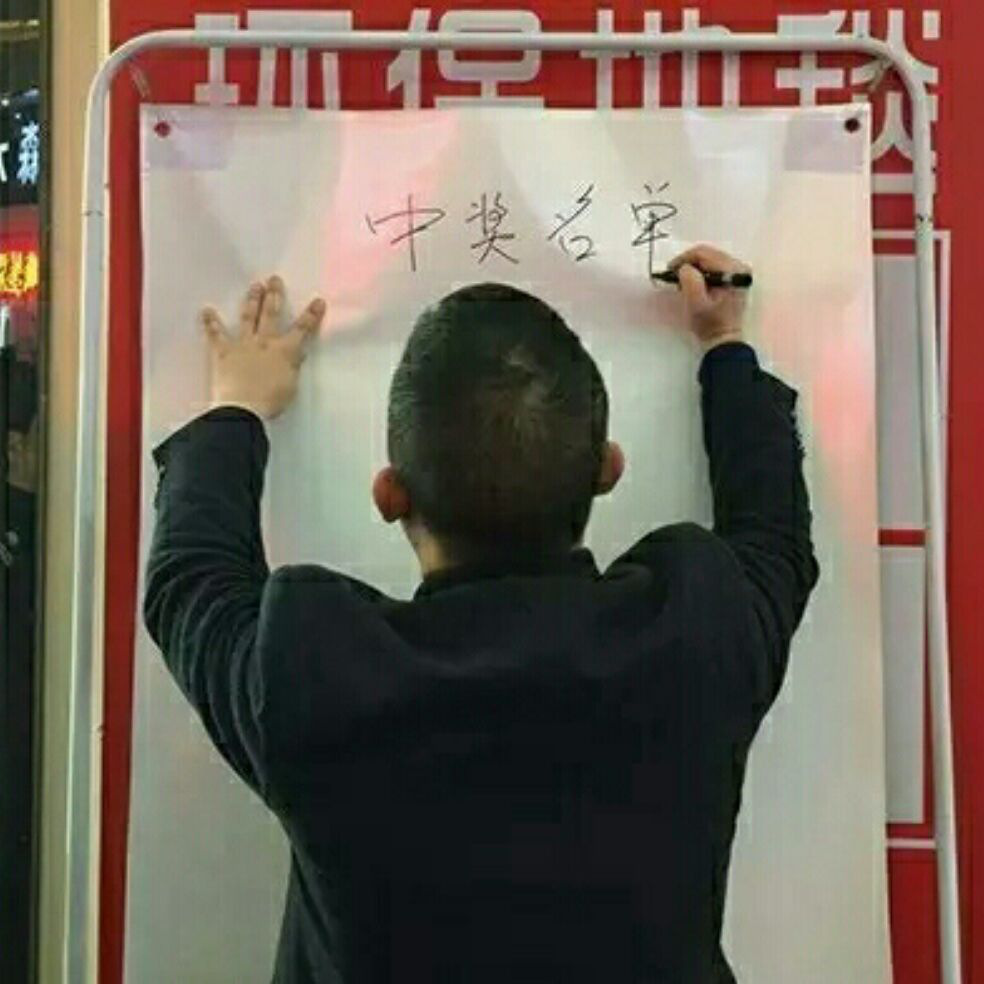 环保地毯
森
中奖名单